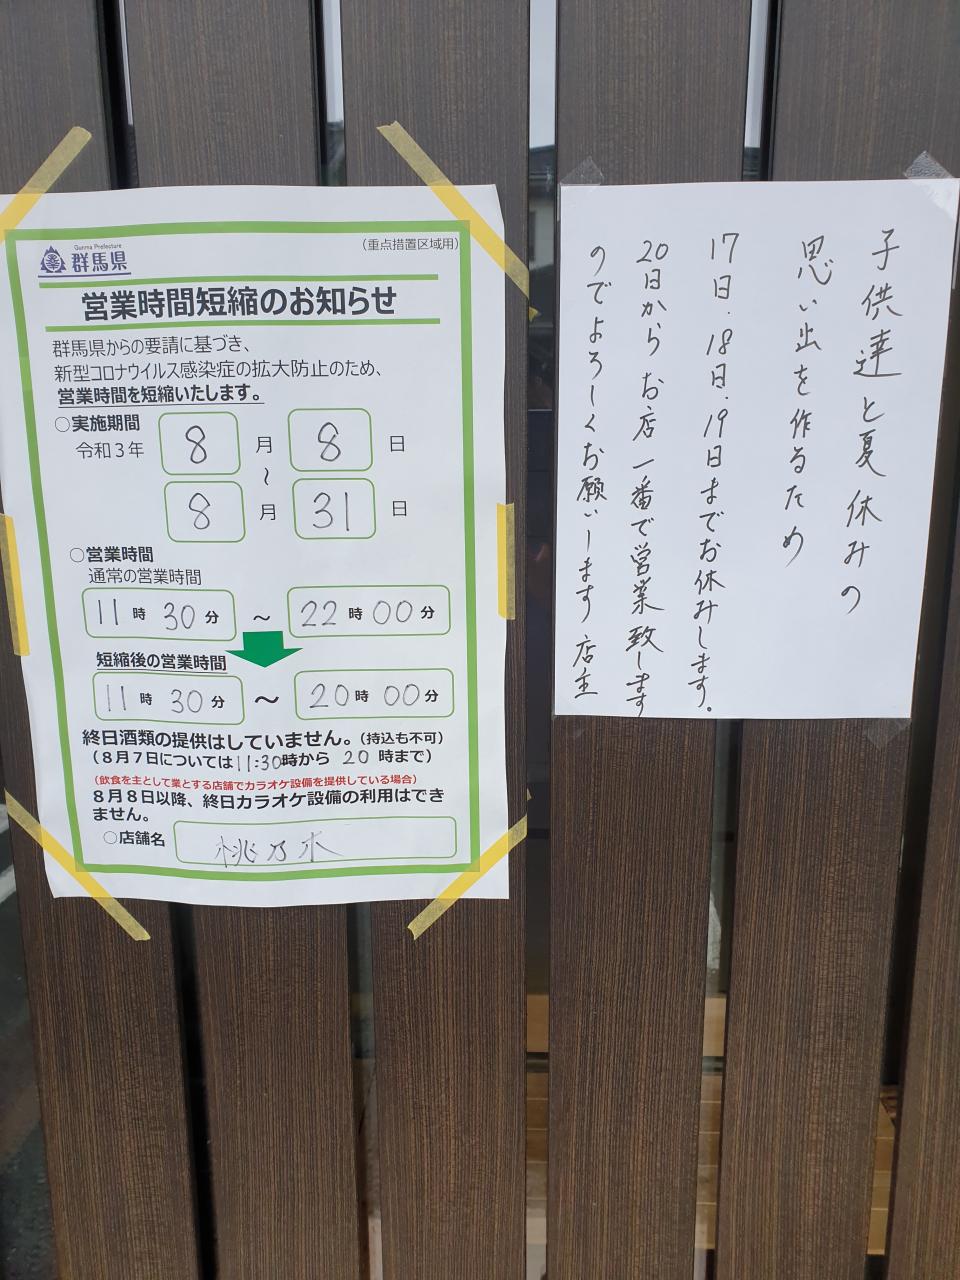 Gunma Prefecture
群馬県
(重点措置区域用)
営業時間短縮のお知らせ
群馬県からの要請に基づき、
新型コロナウイルス感染症の拡大防止のため、
営業時間を短縮いたします。
○実施期間
令和３年 8 月 8 日
～
8 月 31 日
○営業時間
通常の営業時間
11 時 30 分 ～ 22 時 00 分
短縮後の営業時間
11 時 30 分 ～ 20 時 00 分
終日酒類の提供はしていません。(持込も不可)
(８月７日については11:30時から 20 時まで)
(飲食を主として業とする店舗でカラオケ設備を提供している場合)
８月８日以降、終日カラオケ設備の利用はでき
ません。
○店舗名 桃乃木
子供達と夏休みの
思い出を作るため
17日.18日.19日までお休みします。
20日から お店一番で営業致します
のでよろしくお願いします 店主